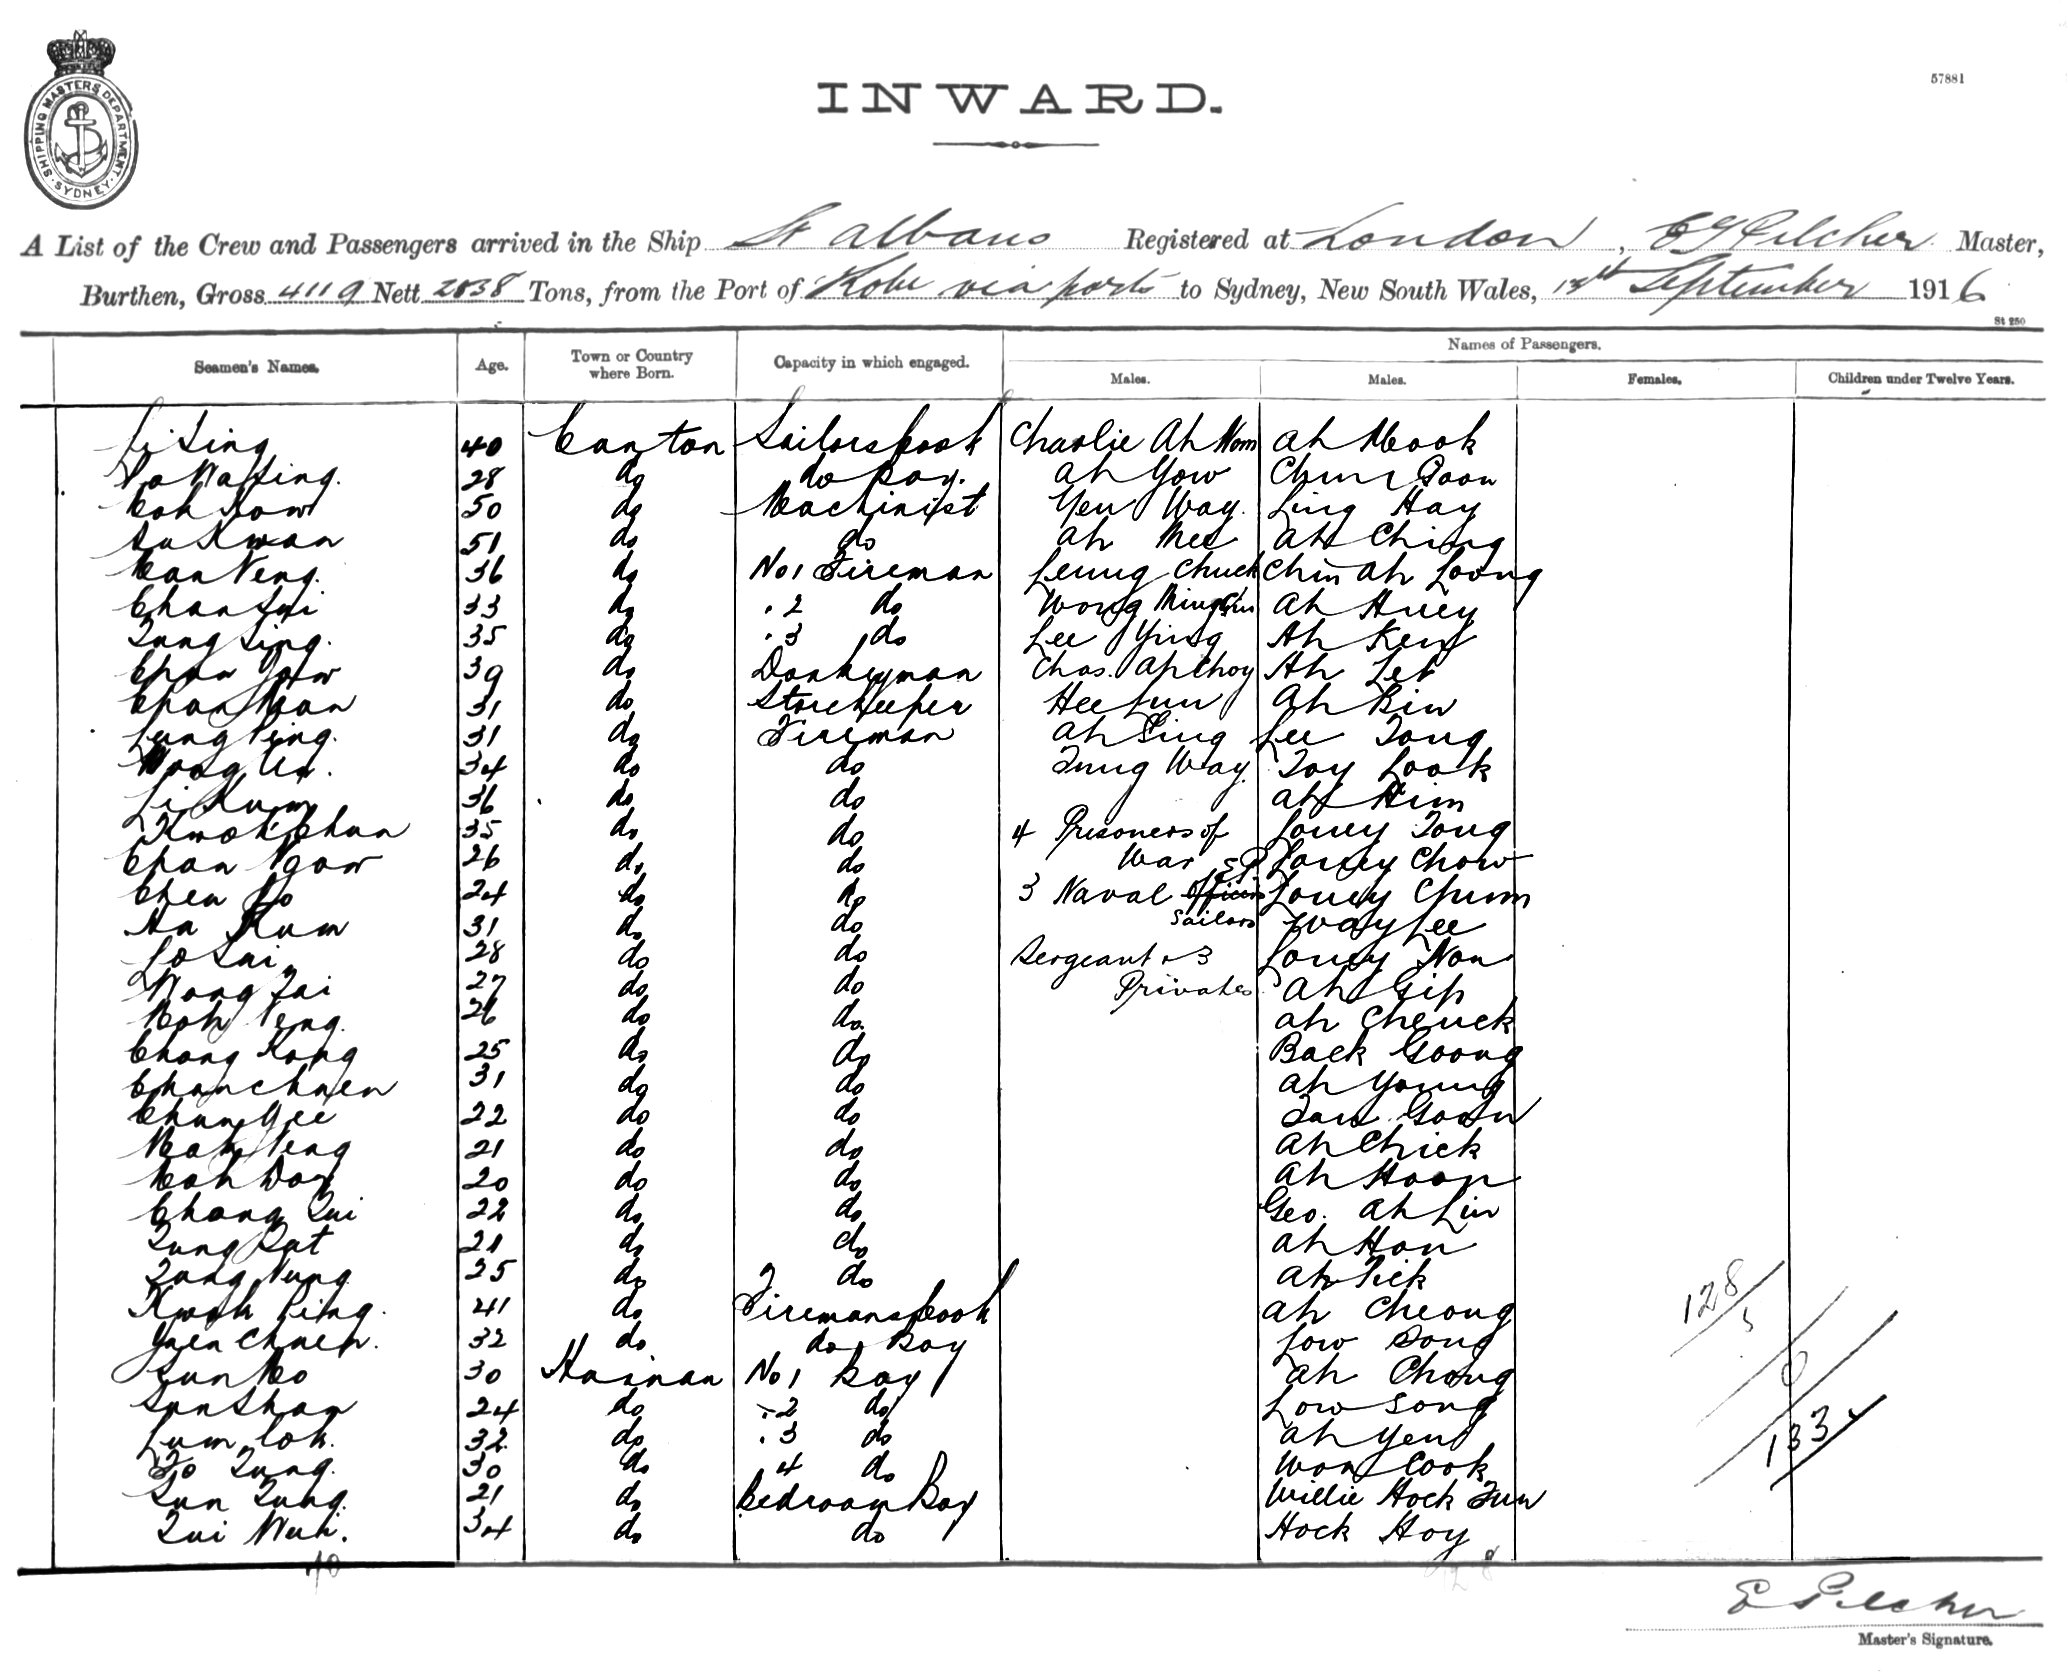 SHIPPING MASTERS DEPARTMENT
SYDNEY
57881
INWARD.
A List of the Crew and Passengers arrived in the Ship St Albans Registered at London, E G Pilcher Master,
Burthen, Gross 4119 Nett 2838 Tons, from the Port of Kobe via ports to Sydney, New South Wales, 13th September 1916
St 250
Names of Passengers.
Seamen's Names. Age. Town or Country where Born. Capacity in which engaged. Males. Males. Females. Children under Twelve Years.
Li Sing 40 Canton Sailors Cook Charlie Ah Mom Ah Mook
28 do do Boy. Ah Yow Chun Poon
50 do Machinist Yen Way. Ling Hay
Su Kwan 51 do do Ah Mee Ah Ching
36 do No 1 Fireman Leung Chuck Chin Ah Loong
Chan Sui 33 do . 2 do Wong Ming Ah Huey
Tung Sing. 35 do . 3 do Lee Ying Ah Ken
Chan 39 do Donkeyman Chas. Ah Choy Ah Let
Chan Man 31 do Storekeeper Hee Lun Ah Bin
Lung Ping. 31 do Fireman Ah Sing Lee Tong
Wong 34 do do Tung Way. Toy Look
Li Kum 36 do do Ah Him
Kwok Chun 35 do do 4 Prisoners of Louey Tong
Chan Ngow 26 do do War Louey Chow
Chen Po 24 do do 3 Naval Officers Louey Chum
Kum 31 do do Sailors Way Lee
Lo Sui 28 do do Sergeant & 3 Louey Non
Wong Tai 27 do do Privates Ah Gip
26 do do. Ah Cheuck
Chong Kong 25 do do Back Goong
Chan Chuen 31 do do Ah Young
Chan Yee 22 do do Goon
21 do do Ah Chick
20 do do Ah Hoon
Chong Sui 22 do do Geo. Ah Lin
Tung Sat 21 do do Ah Hon
Tung Nung 25 do do Ah Tick
Kwok Ping. 41 do Firemans Cook Ah Cheong
Yuen Chuen. 32 do do Boy Low Song
30 Hainan No 1 Boy Ah Chong
Sun Shan 24 do . 2 do Low Song
Lum Lok. 32 do . 3 do Ah Yen
Fo Tung. 30 do . 4 do Won Cook
Sun Tung. 21 do Bedroom Boy Willie Hock Tun
Tui 34 do do Hock Hoy
128
5
0
133
40
128
E Pilcher
Master's Signature.